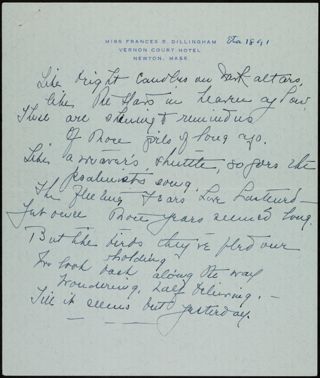 MISS FRANCES R. DILLINGHAM
VERNON COURT HOTEL
NEWTON, MASS.
1891
Like bright candles on dark altars,
like the stars in heaven aglow,
There are shining to remind us
Of those girls of long ago.
Like a weaver's shuttle, so goes the
psalmist's song.
The fleeting years have hastened —
Yet once those years seemed long.
But like birds they've fled our
holding
We look back along the way
Wondering, half believing, —
Till it seems but yesterday.